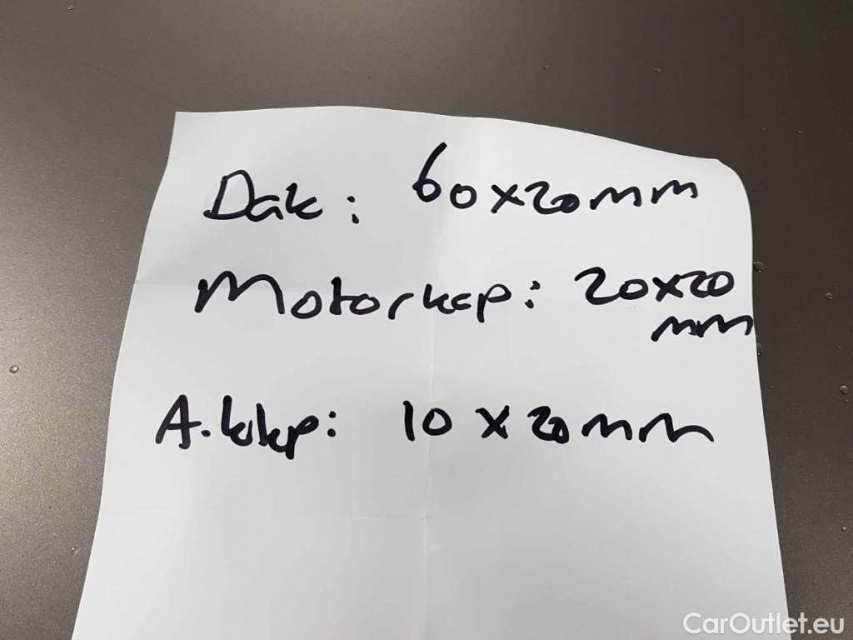 Dak: 60x20mm
Motorkap: 20x20
mm
A.klep: 10 x 20mm
CarOutlet.eu